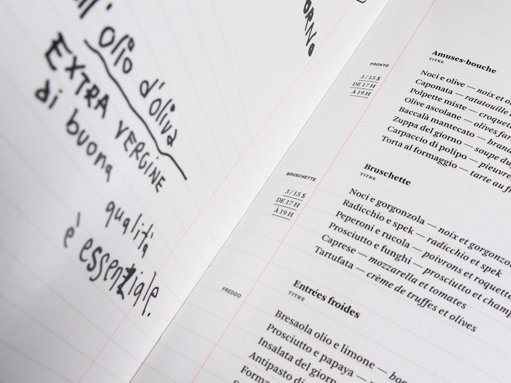 olio d'oliva
EXTRA VERGINE
di buona
qualità
è essenziale.
PRONTO
3 / 15 $
DE 17 H
À 19 H
Amuses-bouche
TITRE
Noci e olive — noix et
Caponata — ratatouille
Polpette miste —
Olive ascolane — olives
Baccalà mantecato —
Zuppa del giorno — soupe du
Carpaccio di polipo — pieuvre
Torta al formaggio — tarte au
BRUSCHETTE
3 / 15 $
DE 17 H
À 19 H
Bruschette
TITRE
Noci e gorgonzola — noix et gorgonzola
Radicchio e spek — radicchio et spek
Peperoni e rucola — poivrons et roquette
Prosciutto e funghi — prosciutto et
Caprese — mozzarella et tomates
Tartufata — crème de truffes et olives
FREDDO
Entrées froides
TITRE
Bresaola olio e limone —
Prosciutto e papaya —
Insalata del
Antipasto di